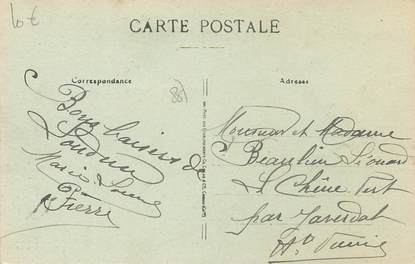 10 €
CARTE POSTALE
Correspondance
Adresse
Bons baisers de
Loudun
Marie Louise
Pierre
(87)
Monsieur et Madame
Beaulieu Léonard
Le Chêne Vert
par Javerdat
Hte Vienne